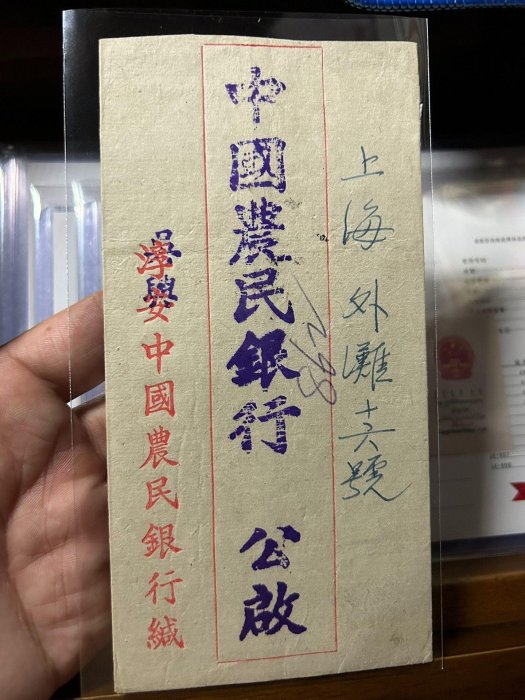 上海 外灘十六號
中國農民銀行 公啟
吳興
淳安中國農民銀行緘